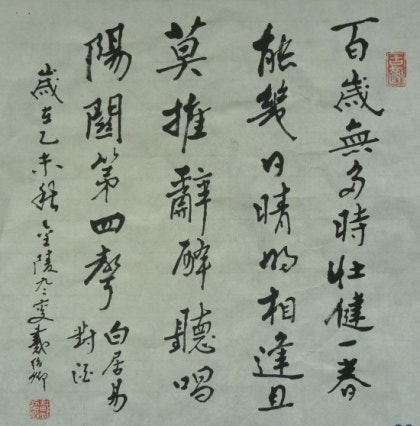 百歲無多時壯健一春
能幾日晴明相逢且
莫推辭醉聽唱
陽關第四聲
白居易
對酒
歲在乙未秋金陵九二叟戴